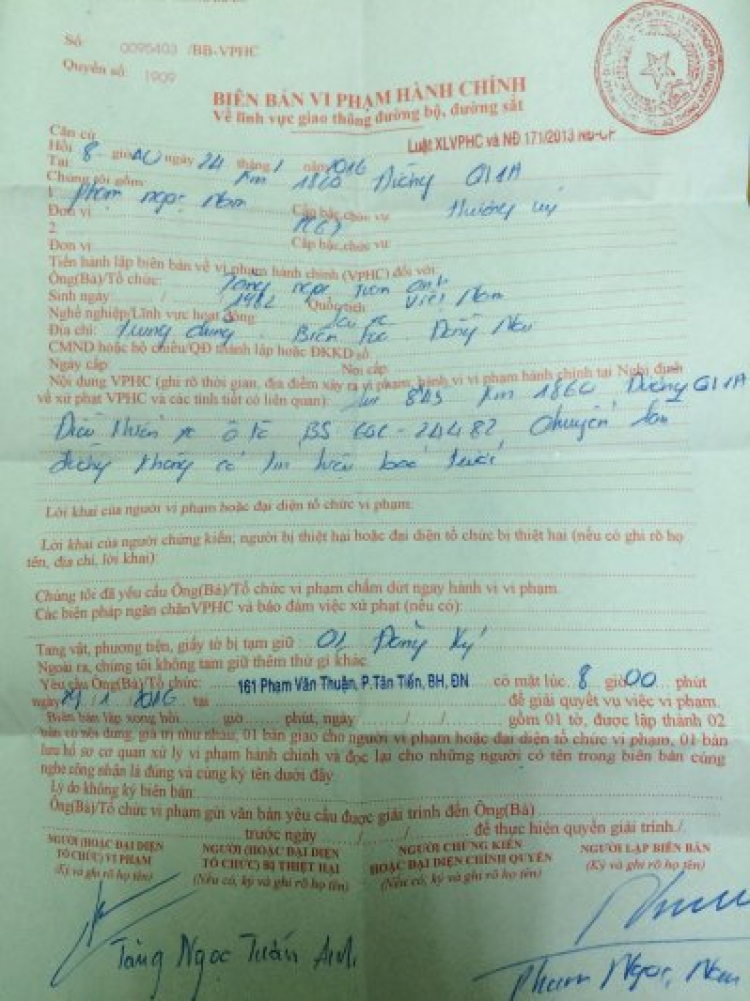 Số: 0095403 /BB-VPHC
Quyển số: 1909
BIÊN BẢN VI PHẠM HÀNH CHÍNH
Về lĩnh vực giao thông đường bộ, đường sắt
Căn cứ Luật XLVPHC và NĐ 171/2013 NĐ-CP
Hồi 8 giờ ngày 24 tháng 1 năm 2016
Tại: Km 1860 Đường Q11A
Chúng tôi gồm:
1. Phạm Ngọc Nam Cấp bậc, chức vụ: Thượng úy
Đơn vị
2. Cấp bậc, chức vụ:
Đơn vị
Tiến hành lập biên bản về vi phạm hành chính (VPHC) đối với:
Ông(Bà)/Tổ chức: Tăng Ngọc Tuấn Anh
Sinh ngày / / 1982 Quốc tịch Việt Nam
Nghề nghiệp/Lĩnh vực hoạt động: Lái xe
Địa chỉ: Trung Dũng Biên Hòa Đồng Nai
CMND hoặc hộ chiếu/QĐ thành lập hoặc ĐKKD số
Ngày cấp: Nơi cấp
Nội dung VPHC (ghi rõ thời gian, địa điểm xảy ra vi phạm, hành vi vi phạm hành chính tại Nghị định
về xử phạt VPHC và các tình tiết có liên quan): Km 1860 Đường Q11A
Điều khiển xe ô tô BS 60C-24482 chuyển làn
đường không có tín hiệu báo trước
Lời khai của người vi phạm hoặc đại diện tổ chức vi phạm:
Lời khai của người chứng kiến; người bị thiệt hại hoặc đại diện tổ chức bị thiệt hại (nếu có ghi rõ họ
tên, địa chỉ, lời khai):
Chúng tôi đã yêu cầu Ông(Bà)/Tổ chức vi phạm chấm dứt ngay hành vi vi phạm.
Các biện pháp ngăn chặn VPHC và bảo đảm việc xử phạt (nếu có):
Tang vật, phương tiện, giấy tờ bị tạm giữ: 01 Đăng ký
Ngoài ra, chúng tôi không tạm giữ thêm thứ gì khác.
Yêu cầu Ông(Bà)/Tổ chức: 161 Phạm Văn Thuận, P.Tân Tiến, BH, ĐN có mặt lúc 8 giờ 00 phút
ngày /1/2016 tại để giải quyết vụ việc vi phạm.
Biên bản lập xong hồi giờ phút, ngày / / gồm 01 tờ, được lập thành 02
bản có nội dung, giá trị như nhau, 01 bản giao cho người vi phạm hoặc đại diện tổ chức vi phạm, 01 bản
lưu hồ sơ cơ quan xử lý vi phạm hành chính và đọc lại cho những người có tên trong biên bản cùng
nghe công nhận là đúng và cùng ký tên dưới đây.
Lý do không ký biên bản:
Ông(Bà)/Tổ chức vi phạm gửi văn bản yêu cầu được giải trình đến Ông(Bà)
trước ngày / / để thực hiện quyền giải trình./.
NGƯỜI (HOẶC ĐẠI DIỆN TỔ CHỨC) VI PHẠM
(Ký và ghi rõ họ tên)
NGƯỜI (HOẶC ĐẠI DIỆN TỔ CHỨC) BỊ THIỆT HẠI
(Nếu có, ký và ghi rõ họ tên)
NGƯỜI CHỨNG KIẾN HOẶC ĐẠI DIỆN CHÍNH QUYỀN
(Nếu có, ký và ghi rõ họ tên)
NGƯỜI LẬP BIÊN BẢN
(Ký và ghi rõ họ tên)
Tăng Ngọc Tuấn Anh
Phạm Ngọc Nam